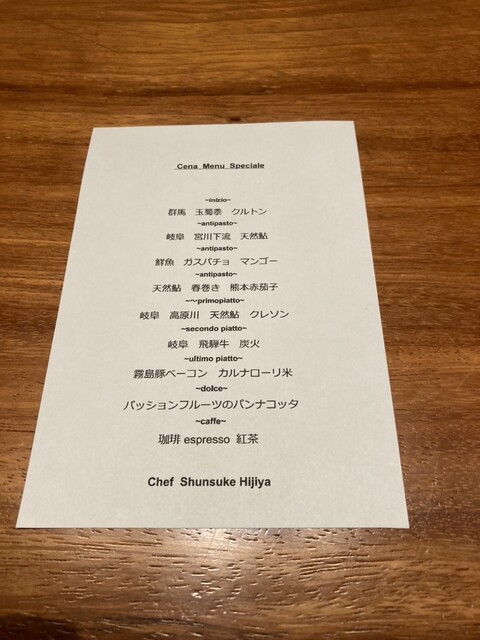 Cena Menu Speciale
~inizio~
群馬 玉蜀黍 クルトン
~antipasto~
岐阜 宮川下流 天然鮎
~antipasto~
鮮魚 ガスパチョ マンゴー
~antipasto~
天然鮎 春巻き 熊本赤茄子
~～primopiatto~
岐阜 高原川 天然鮎 クレソン
~secondo piatto~
岐阜 飛騨牛 炭火
~ultimo piatto~
霧島豚ベーコン カルナローリ米
~dolce~
パッションフルーツのパンナコッタ
~caffe~
珈琲 espresso 紅茶
Chef Shunsuke Hijiya